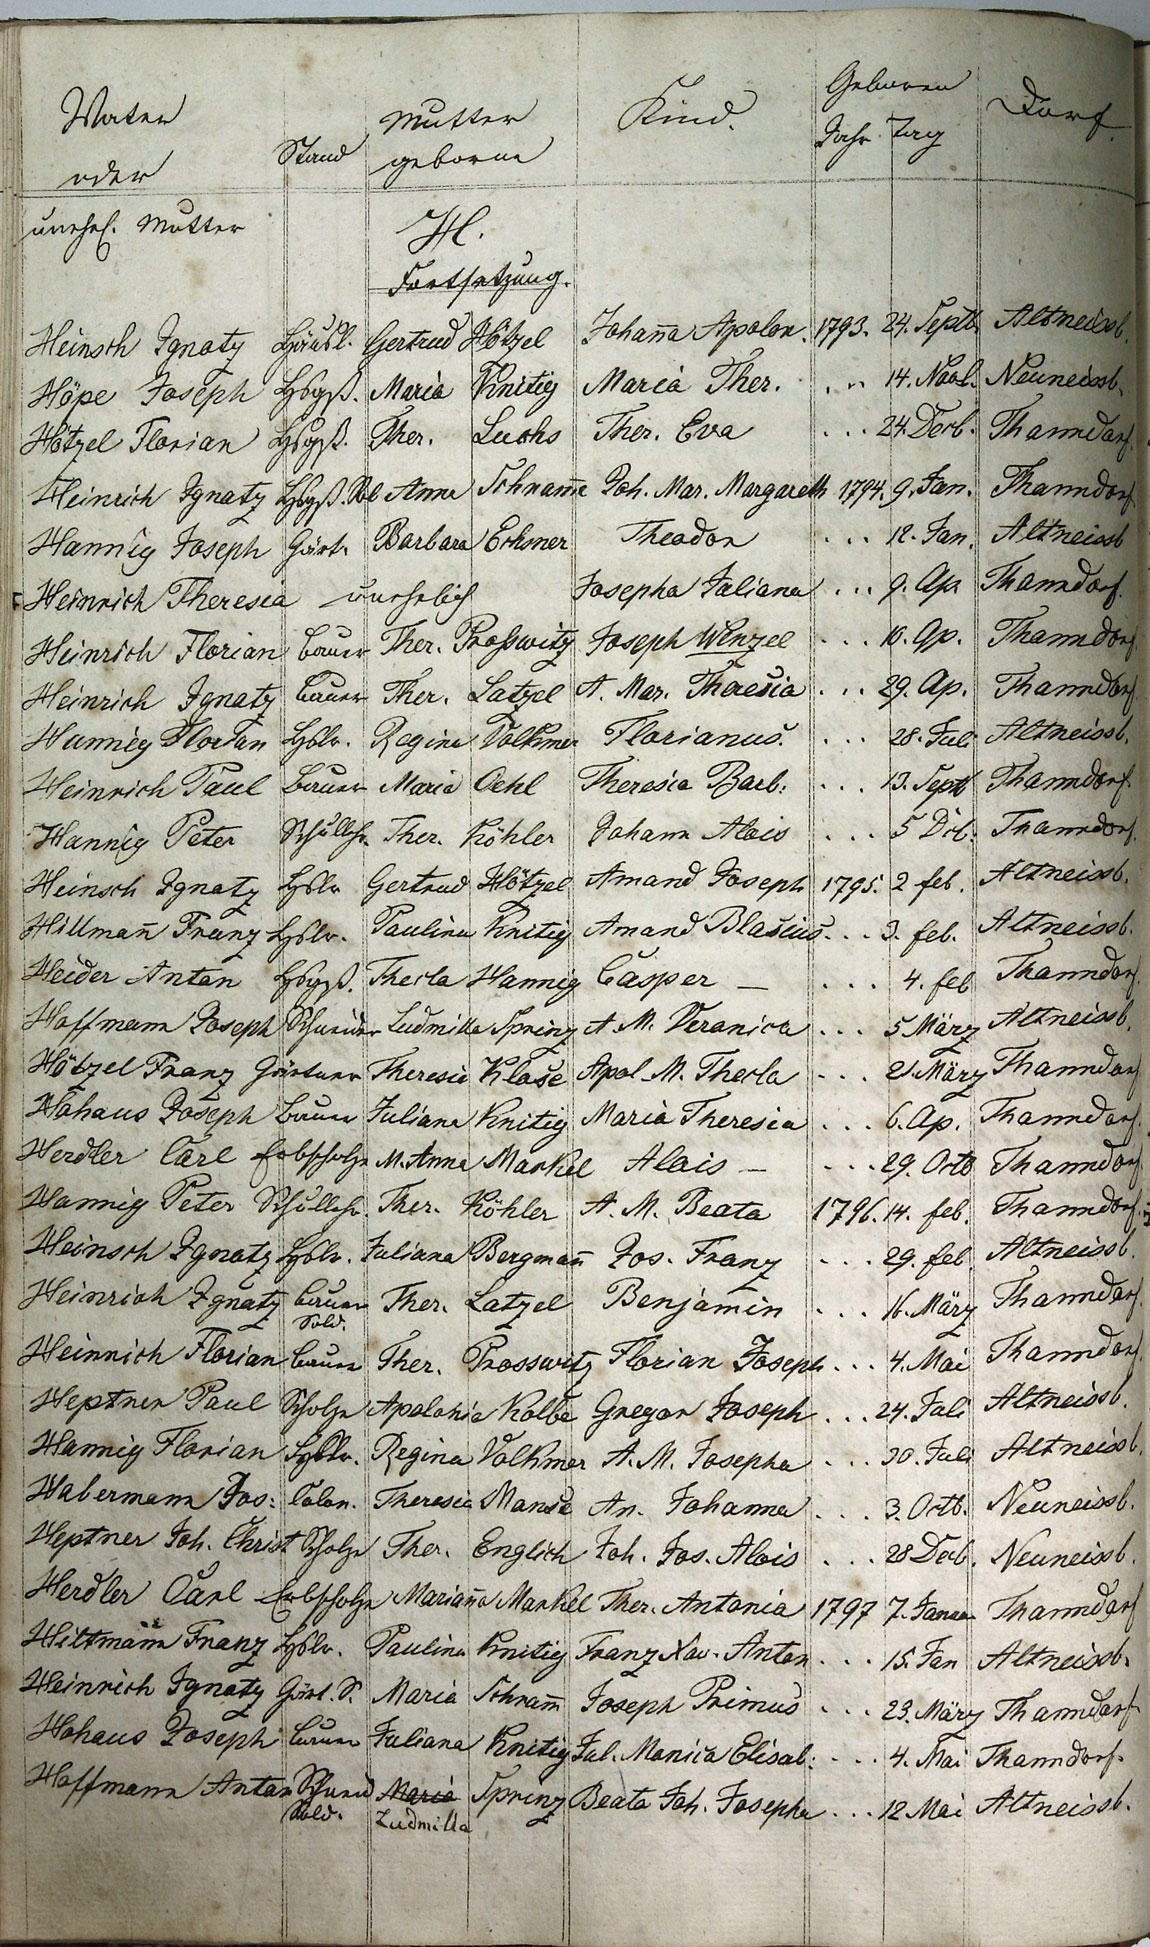 Vater Mutter Kind. Geboren Dorf.
oder Stand geborne Jahr Tag
unehel. Mutter H.
Fortsetzung.
Heinsch Ignatz Häusl. Gertrud Hötzel Johana Apolon. 1793. 24. Septb Altneissb.
Höpe Joseph Hsgß. Maria Knitig Maria Ther. . .. 14. Novb. Neuneissb.
Hötzel Florian Hsgß. Ther. Luchs Ther. Eva ... 24 Decb. Thanndorf.
Heinrich Ignatz Hsgß. Sol Anna Schram Joh. Mar. Margareth 1794. 9. Jan. Thanndorf
Hannig Joseph Gärt. Barbara Theodor ... 12. Jan. Altneissb
Heinrich Theresia unehelich Josepha Juliana ... 9. Ap. Thanndorf.
Heinrich Florian bauer Ther. Proßwitz Joseph Wenzel ... 10. Ap. Thanndorf.
Heinrich Ignatz bauer Ther. Latzel A. Mar. Theresia ... 29. Ap. Thanndorf.
Hannig Florian Hslr. Regina Volkmer Florianus. ... 28. Juli Altneissb.
Heinrich Paul bauer Maria Oehl Theresia Barb: ... 13. Septb Thanndorf.
Hannig Peter Schulleh. Ther. Köhler Johann Alois ... 5 Dcb. Thanndorf.
Heinsch Ignatz Hslr Gertrud Hötzel Amand Joseph 1795. 2 feb. Altneissb.
Hillman Franz Hslr. Paulina Knitig Amand Blasius ... 3. feb. Altneissb.
Heider Anton Hsgß. Thecla Hannig Casper — ... 4. feb Thanndorf.
Hoffmann Joseph Schneider Ludmilla Sprinz A. M. Veronica ... 5 März Altneissb.
Hötzel Franz Gärtner Theresia Klose Apol. M. Thecla ... 21. März Thanndorf
Hohaus Joseph bauer Juliana Knitig Maria Theresia ... 6. Ap. Thanndorf.
Herdler Carl Erbscholz M. Anna Markel Alois — ... 29. Octb Thanndorf
Hannig Peter Schulleh. Ther. Köhler A. M. Beata 1796. 14. feb. Thanndorf.
Heinsch Ignatz Hslr. Juliana Bergman Jos. Franz ... 29. feb. Altneissb.
Heinrich Ignatz bauer Ther. Latzel Benjamin ... 16. März Thanndorf.
Sold.
Heinrich Florian bauer Ther. Prosswitz Florian Joseph ... 4. Mai Thanndorf.
Heptner Paul Scholze Apolonia Kolbe Gregor Joseph ... 24. Juli Altneissb.
Hannig Florian Hslr. Regina Volkmer A. M. Josepha ... 30. Juli Altneissb.
Habermann Jos: Colon. Theresia An. Johanna ... 3. Octb. Neuneissb.
Heptner Joh. Christ Scholze Ther. Englich Joh. Jos. Alois ... 28 Decb. Neuneissb.
Herdler Carl Erbscholz Mariana Markel Ther. Antonia 1797 7. Januar Thanndorf
Hiltmann Franz Hslr. Paulina Knitig Franz Xav. Anton ... 15. Jan Altneissb.
Heinrich Ignatz Gärt. S. Maria Schram Joseph Primus ... 23. März Thanndorf
Hohaus Joseph bauer Juliana Knitig Jul. Monica Elisab: ... 4. Mai Thanndorf.
Hoffmann Anton Schneid Maria Sprinz Beata Joh. Josepha ... 12 Mai Altneissb.
Sold. Ludmilla